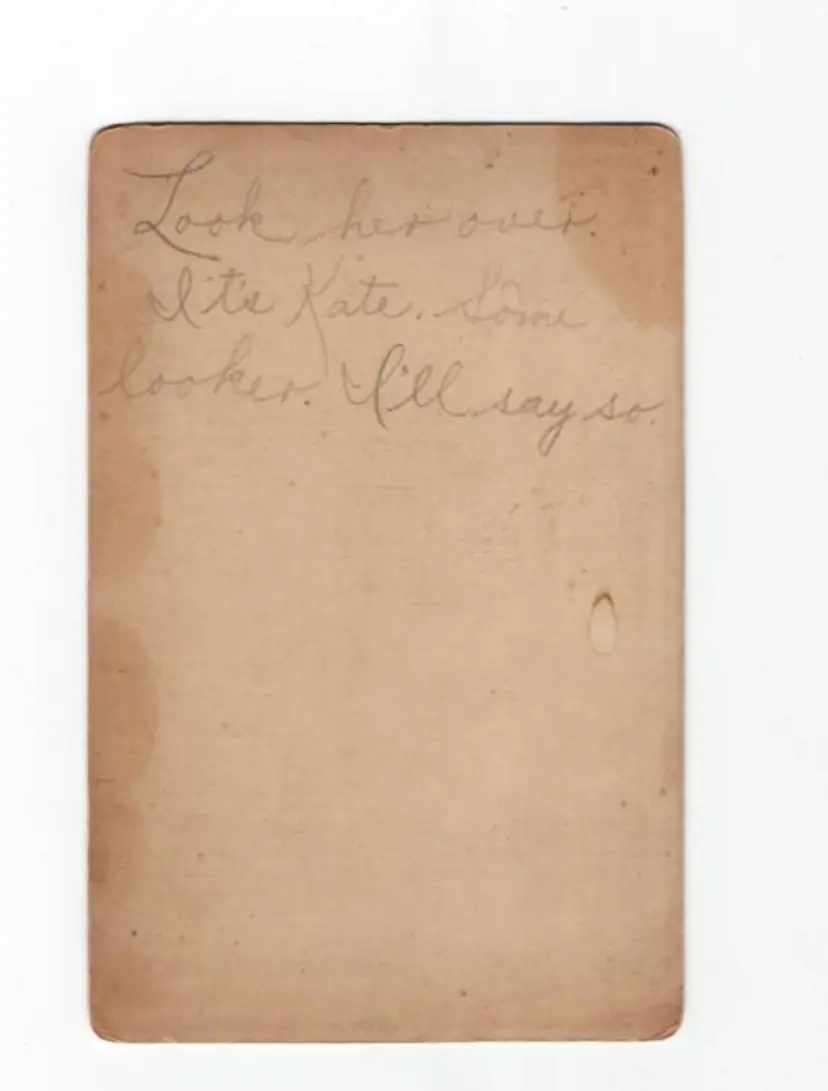 Look her over.
It's Kate. Some
looker. I'll say so.